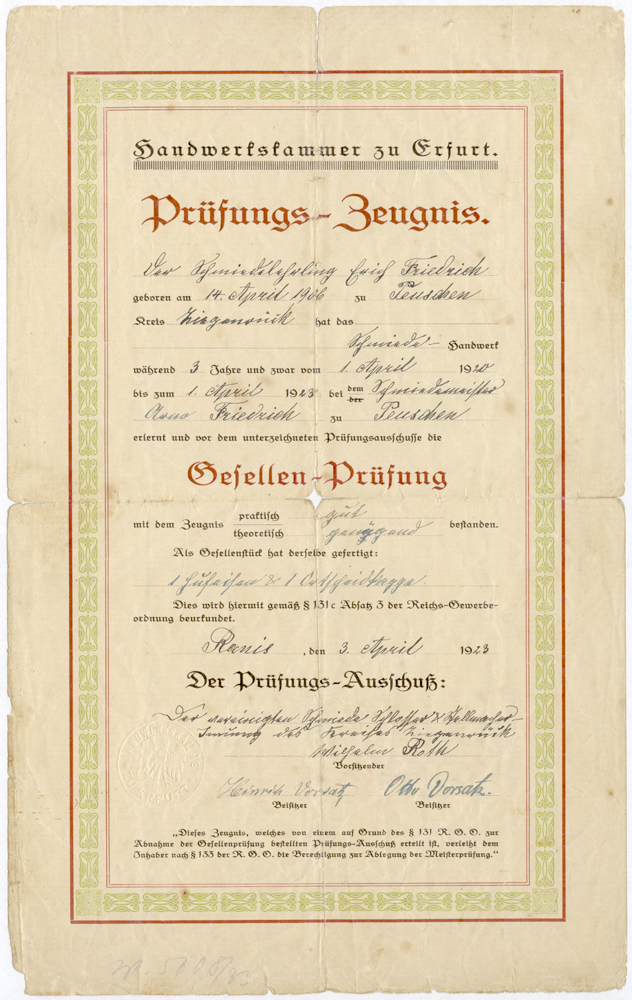 Handwerkskammer zu Erfurt.
Prüfungs-Zeugnis.
Der Schmiedelehrling Erich Friedrich
geboren am 14. April 1906 zu Peuschen
Kreis Ziegenrück hat das
Schmiede- Handwerk
während 3 Jahre und zwar vom 1. April 1920
bis zum 1. April 1923 bei dem der Schmiedemeister
Arno Friedrich zu Peuschen
erlernt und vor dem unterzeichneten Prüfungsausschusse die
Gesellen-Prüfung
mit dem Zeugnis praktisch gut
theoretisch genügend bestanden.
Als Gesellenstück hat derselbe gefertigt:
1 Hufeisen & 1 Ortscheidkappe.
Dies wird hiermit gemäß § 131c Absatz 3 der Reichs-Gewerbe-
ordnung beurkundet.
Ranis, den 3. April 1923
Der Prüfungs-Ausschuß:
Der vereinigten Schmiede Schlosser & Stellmacher-
Innung des Kreises Ziegenrück
Wilhelm Roth
Vorsitzender
Heinrich Vorsatz Otto Vorsatz.
Beisitzer Beisitzer
„Dieses Zeugnis, welches von einem auf Grund des § 131 R. G. O. zur
Abnahme der Gesellenprüfung bestellten Prüfungs-Ausschuß erteilt ist, verleiht dem
Inhaber nach § 133 der R. G. O. die Berechtigung zur Ablegung der Meisterprüfung."